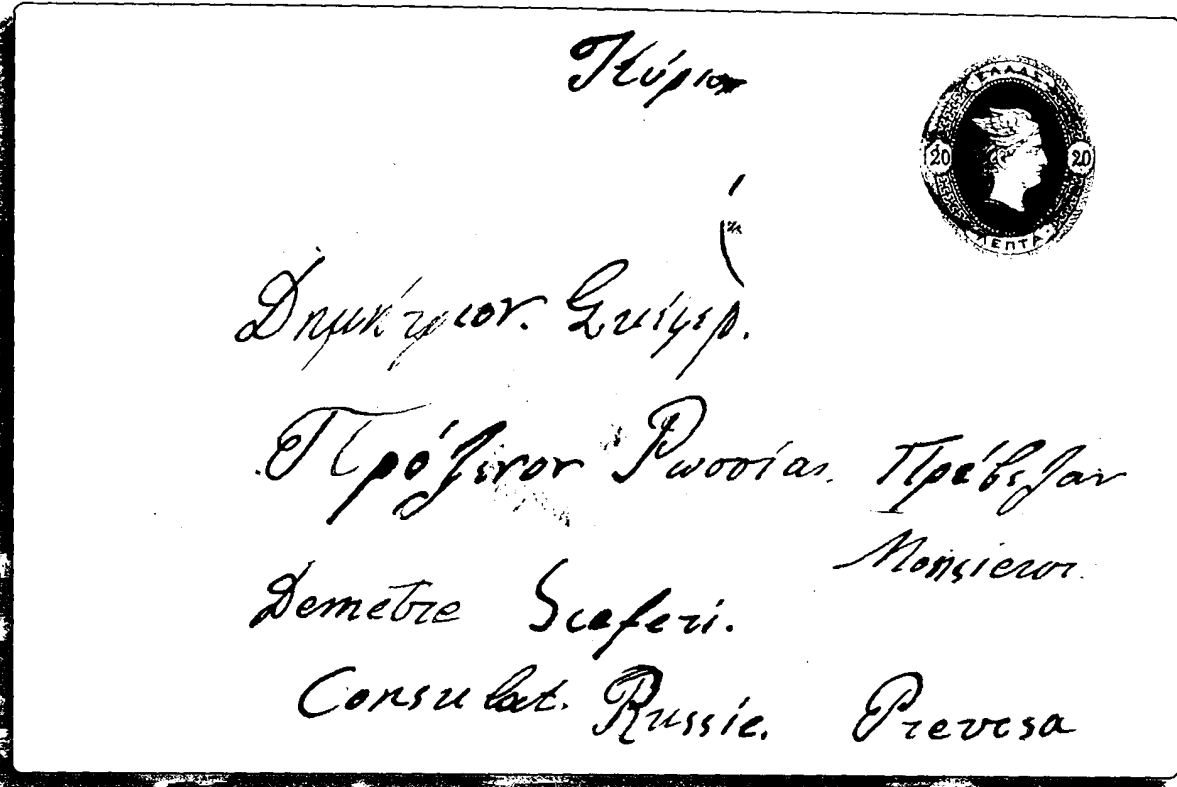 Κύριον
ΕΛΛΑΣ
20 20
ΛΕΠΤΑ
Δημήτριον. Σκέφερ.
Πρόξενον Ρωσσίας. Πρέβεζαν
Monsieur
Demetre Sceferi.
Consulat. Russie. Prevesa